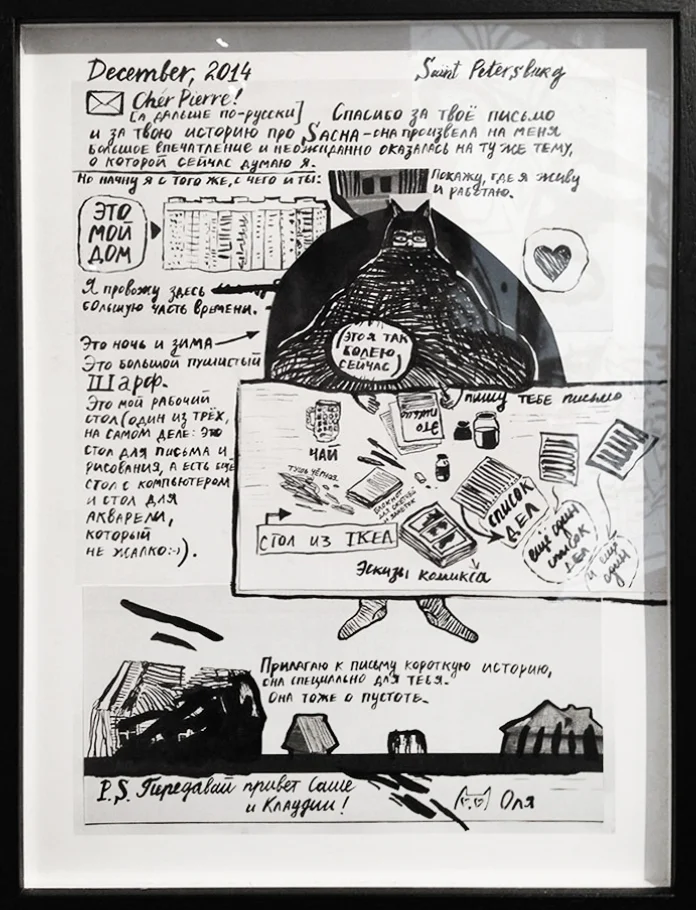 December, 2014
Saint Petersburg
Chér Pierre!
[а дальше по-русски] Спасибо за твоё письмо
и за твою историю про Sacha - она произвела на меня
большое впечатление и неожиданно оказалась на ту же тему,
о которой сейчас думаю я.
Но начну я с того же, с чего и ты:
Покажу, где я живу
и работаю.
Это
мой
дом
Я провожу здесь
большую часть времени.
(это я так
болею
сейчас)
Это ночь и зима
Это большой пушистый
Шарф.
Это мой рабочий
стол (один из трёх,
на самом деле: это
стол для письма и
рисования, а есть ещё
стол с компьютером
и стол для
акварели,
который
не жалко:-)).
пишу тебе письмо
Это
пишу
чай
тушь чёрная
блокнот
для скетчей
и заметок
список
дел
ещё один
список
дел
и ещё
один
стол из IKEA
Эскизы комикса
Прилагаю к письму короткую историю,
она специально для тебя.
Она тоже о пустоте.
P.S. Передавай привет Саше
и Клаудии!
Оля